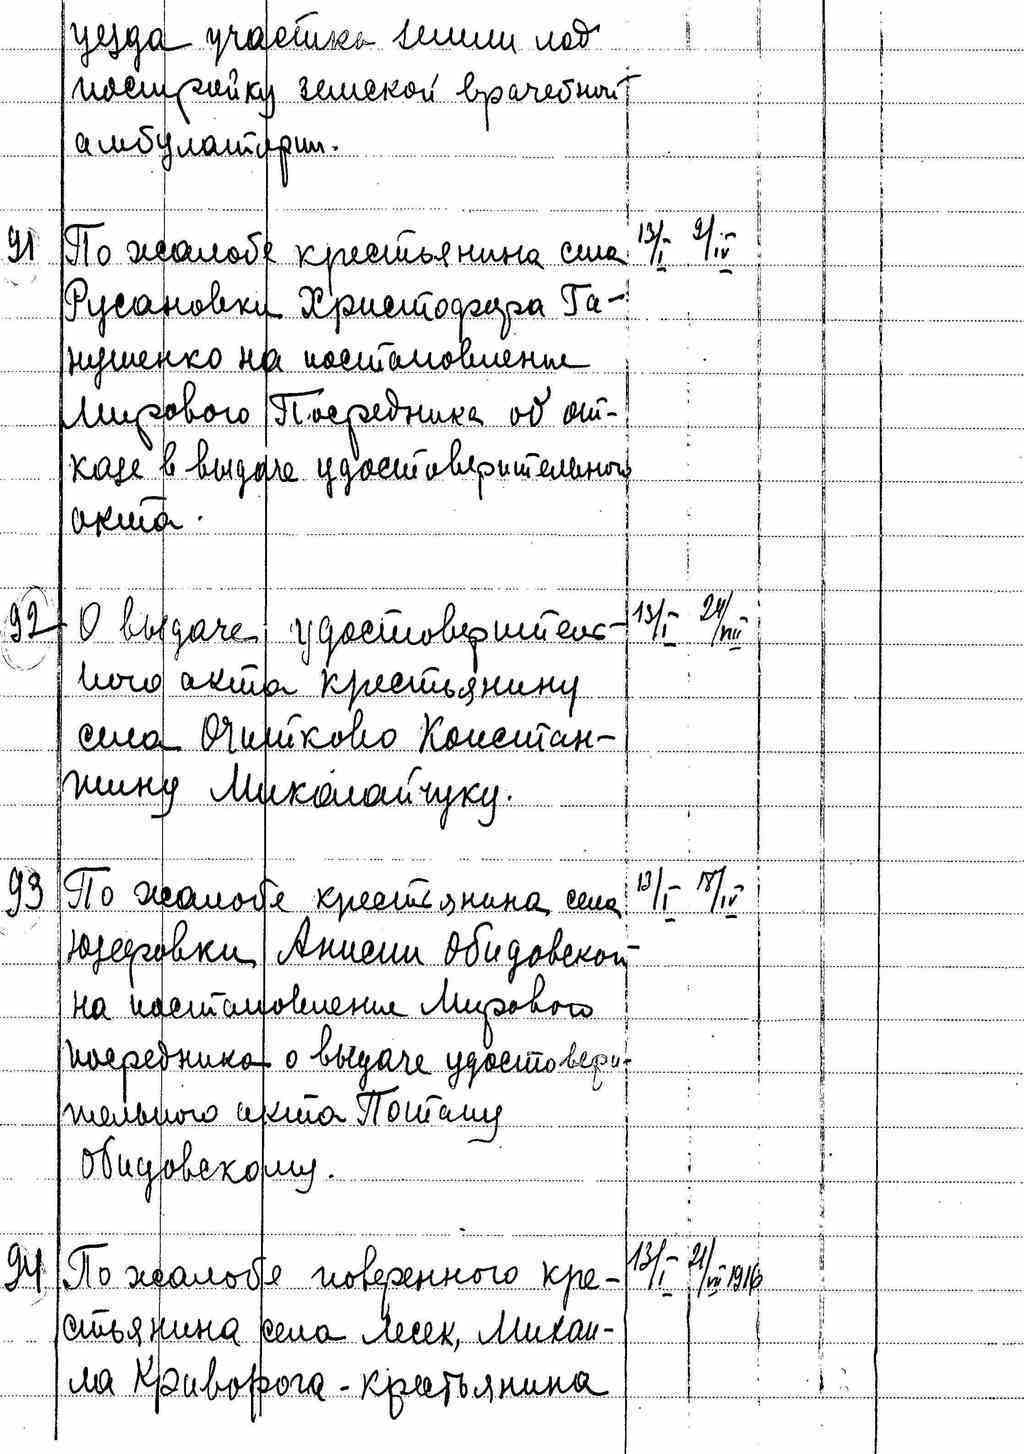 уезда участка земли под
постройку земской врачебной
амбулатории.
91 По жалобе крестьянина села 13/I 9/IV
Русановки Христофора Га-
нушенко на постановление
Мирового Посредника об от-
казе в выдаче удостоверительного
акта.
92 О выдаче удостоверитель- 13/I 24/VII
ного акта крестьянину
села Очитково Констан-
тину Миколайчуку.
93 По жалобе крестьянина села 13/I 18/IV
Юзефовки Анисии Обидовской
на постановление Мирового
посредника о выдаче удостовери-
тельного акта Потапу
Обидовскому.
94 По жалобе поверенного кре- 13/I 21/VII 1916
стьянина села Лесек, Михаи-
ла Криворога - крестьянина